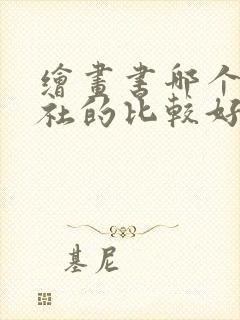 繪畫書哪个
社的比較好
基尼